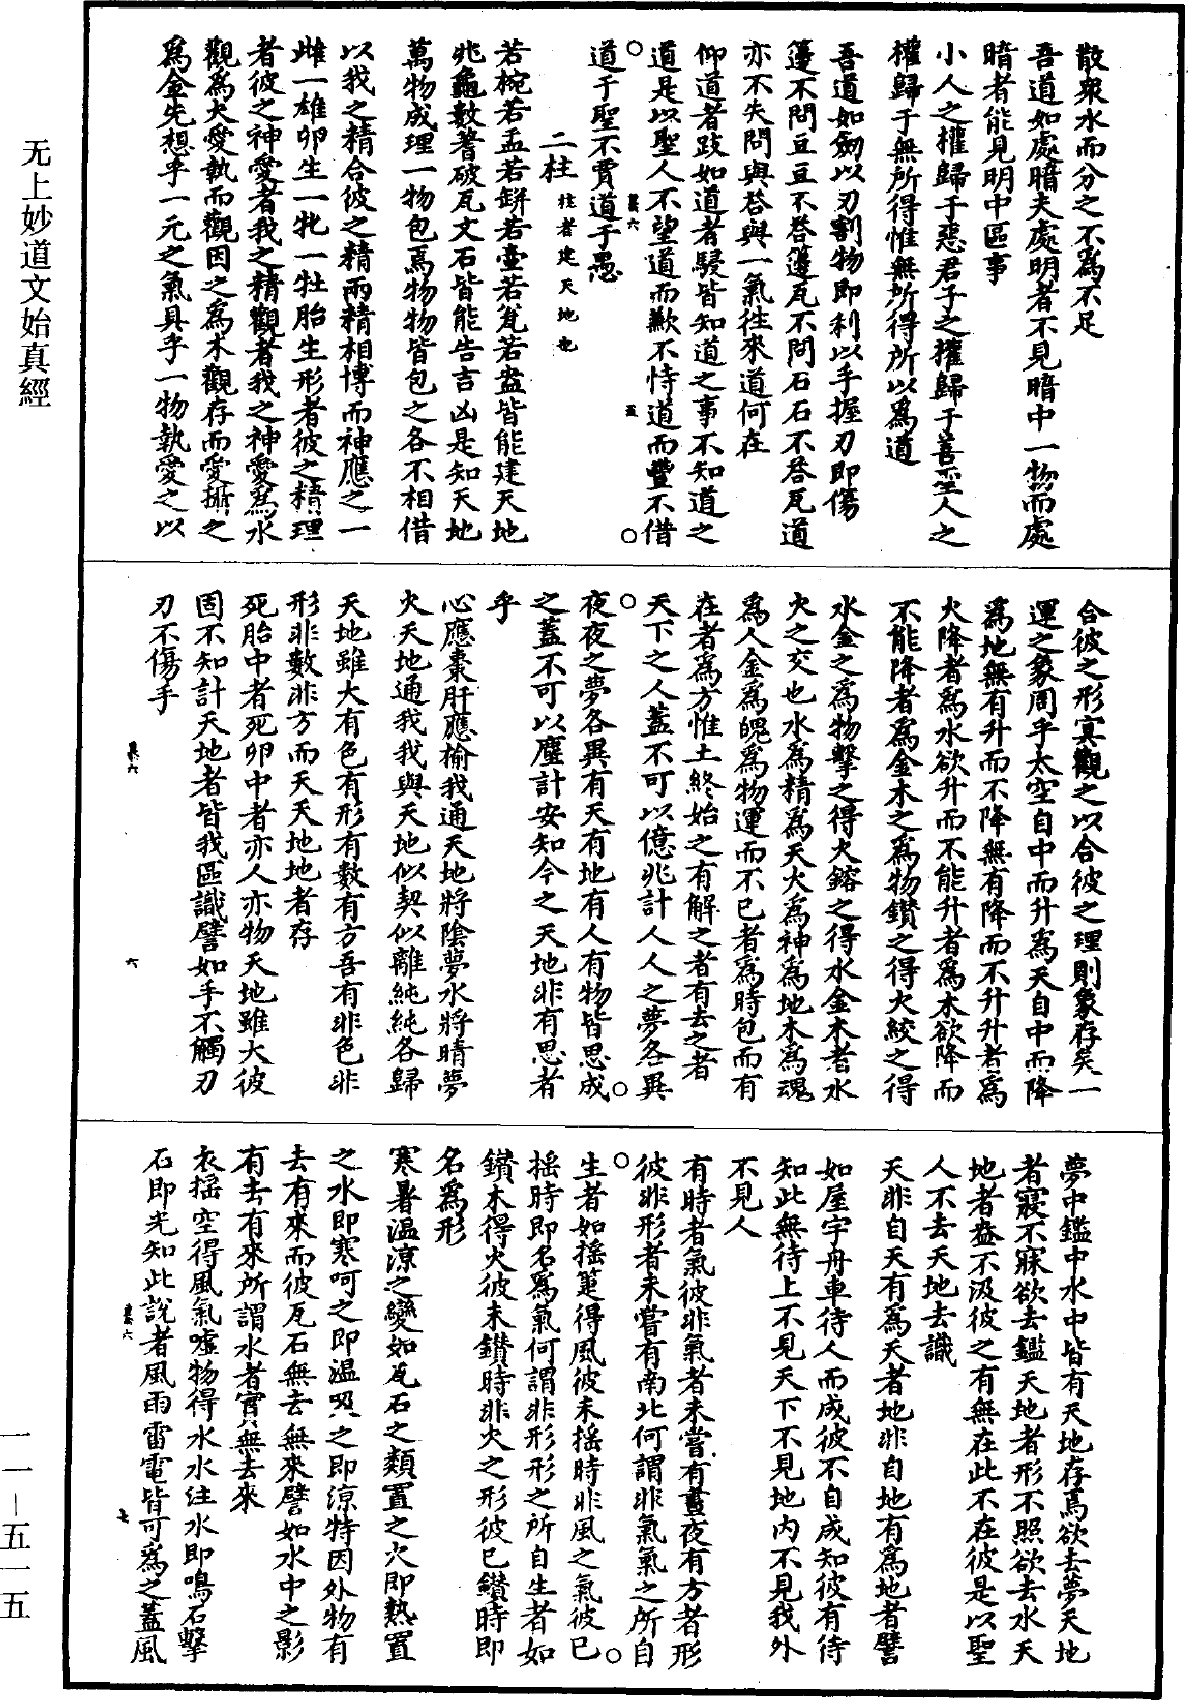 无上妙道文始真經
散衆水而分之不爲不足
吾道如處暗夫處明者不見暗中一物而處
暗者能見明中區事
小人之權歸于惡君子之權歸于善聖人之
權歸于無所得惟無所得所以爲道
吾道如劒以刃割物即利以手握刃即傷
籩不問豆豆不荅籩瓦不問石石不荅瓦道
亦不失問與荅與一氣往來道何在
仰道者跂如道者駸皆知道之事不知道之
道是以聖人不望道而歉不恃道而豐不借
道于聖不賈道于愚
二柱 柱者建天地也
若椀若盂若缾若壺若瓮若盎皆能建天地
兆龜數蓍破瓦文石皆能告吉凶是知天地
萬物成理一物包焉物物皆包之各不相借
以我之精合彼之精兩精相摶而神應之一
雌一雄卵生一牝一牡胎生形者彼之精理
者彼之神愛者我之精觀者我之神愛爲水
觀爲火愛執而觀因之爲木觀存而愛攝之
爲金先想乎一元之氣具乎一物執愛之以
合彼之形冥觀之以合彼之理則象存矣一
運之象周乎太空自中而升爲天自中而降
爲地無有升而不降無有降而不升升者爲
火降者爲水欲升而不能升者爲木欲降而
不能降者爲金木之爲物鑽之得火絞之得
水金之爲物擊之得火鎔之得水金木者水
火之交也水爲精爲天火爲神爲地木爲魂
爲人金爲魄爲物運而不已者爲時包而有
在者爲方惟土終始之有解之者有去之者
天下之人蓋不可以億兆計人人之夢各異
夜夜之夢各異有天有地有人有物皆思成
之蓋不可以塵計安知今之天地非有思者
乎
心應棗肝應榆我通天地將陰夢水將晴夢
火天地通我我與天地似契似離純純各歸
天地雖大有色有形有數有方吾有非色非
形非數非方而天天地地者存
死胎中者死卵中者亦人亦物天地雖大彼
固不知計天地者皆我區識譬如手不觸刃
刃不傷手
夢中鑑中水中皆有天地存焉欲去夢天地
者寢不寐欲去鑑天地者形不照欲去水天
地者盎不汲彼之有無在此不在彼是以聖
人不去天地去識
天非自天有爲天者地非自地有爲地者譬
如屋宇舟車待人而成彼不自成知彼有待
知此無待上不見天下不見地內不見我外
不見人
有時者氣彼非氣者未嘗有晝夜有方者形
彼非形者未嘗有南北何謂非氣氣之所自
生者如搖箑得風彼未搖時非風之氣彼已
搖時即名爲氣何謂非形形之所自生者如
鑽木得火彼未鑽時非火之形彼已鑽時即
名爲形
寒暑溫涼之變如瓦石之類置之火即熱置
之水即寒呵之即溫吸之即涼特因外物有
去有來而彼瓦石無去無來譬如水中之影
有去有來所謂水者實無去來
衣搖空得風氣噓物得水水注水即鳴石擊
石即光知此說者風雨雷電皆可爲之蓋風
一一—五一五